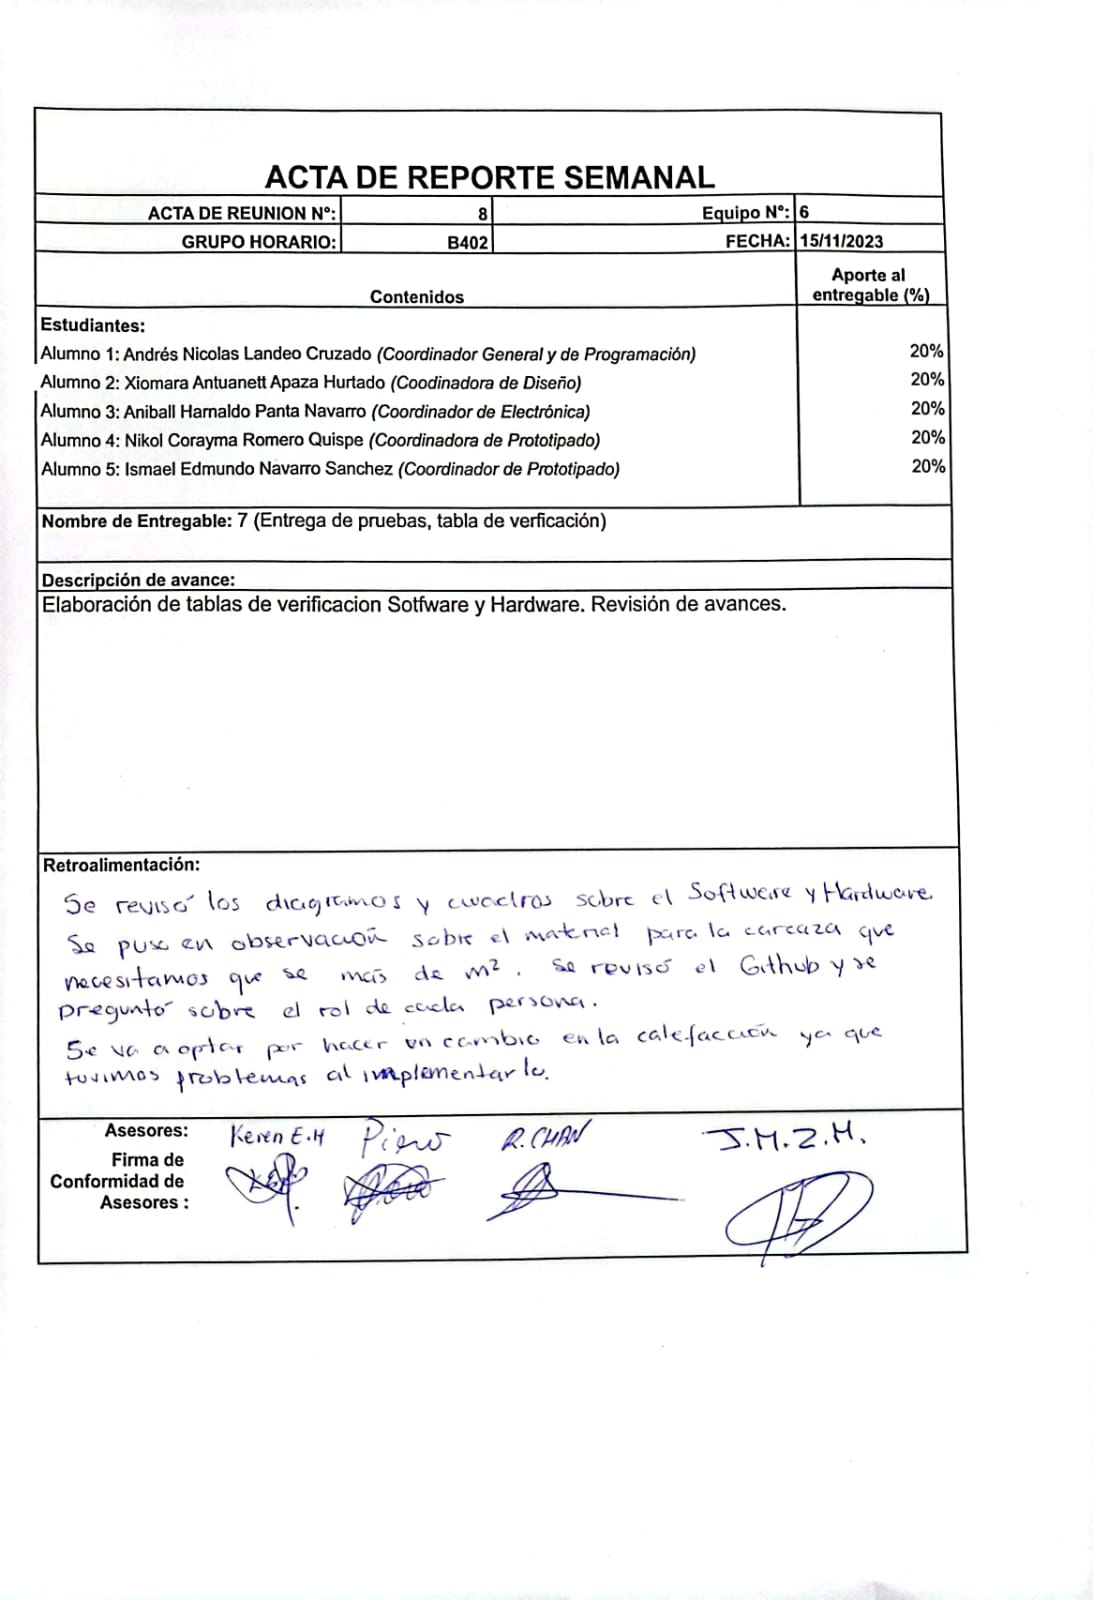 ACTA DE REPORTE SEMANAL
ACTA DE REUNION Nº: 8 Equipo Nº: 6
GRUPO HORARIO: B402 FECHA: 15/11/2023
Contenidos Aporte al entregable (%)
Estudiantes:
Alumno 1: Andrés Nicolas Landeo Cruzado (Coordinador General y de Programación) 20%
Alumno 2: Xiomara Antuanett Apaza Hurtado (Coodinadora de Diseño) 20%
Alumno 3: Aniball Harnaldo Panta Navarro (Coordinador de Electrónica) 20%
Alumno 4: Nikol Corayma Romero Quispe (Coordinadora de Prototipado) 20%
Alumno 5: Ismael Edmundo Navarro Sanchez (Coordinador de Prototipado) 20%
Nombre de Entregable: 7 (Entrega de pruebas, tabla de verficación)
Descripción de avance:
Elaboración de tablas de verificacion Sotfware y Hardware. Revisión de avances.
Retroalimentación:
Se revisó los diagramas y cuadros sobre el Software y Hardware.
Se puso en observación sobre el material para la carcaza que
necesitamos que se más de m². Se revisó el Github y se
preguntó sobre el rol de cada persona.
Se va a optar por hacer un cambio en la calefacción ya que
tuvimos problemas al implementarlo.
Asesores: Keren E.H Piero R.CHAN J.M.Z.M.
Firma de
Conformidad de
Asesores :